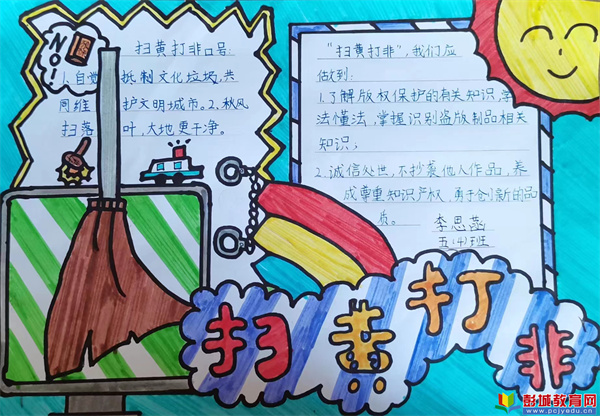 NO!
扫黄打非口号:
1.自觉抵制文化垃圾,共
同维护文明城市。2、秋风
扫落叶,大地更干净。
“扫黄打非”,我们应
做到:
1.了解版权保护的有关知识,学
法懂法,掌握识别盗版制品相关
知识;
2.诚信处世,不抄袭他人作品,养
成尊重知识产权,勇于创新的品
质。
李思菡
五(4)班
扫黄打非
彭城教育网
www.pcjyedu.cn